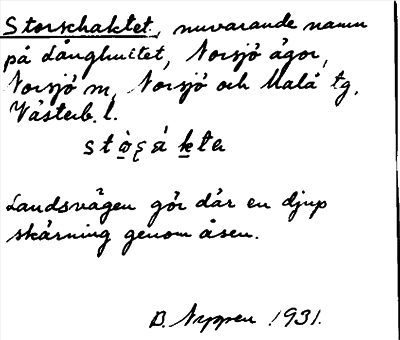 Storschaktet, nuvarande namn
på Långhultet, Norsjö ägor,
Norsjö m, Norsjö och Malå tg,
Västerb. l.
Landsvägen gör där en djup
skärning genom åsen.
B. Nyppen 1931.